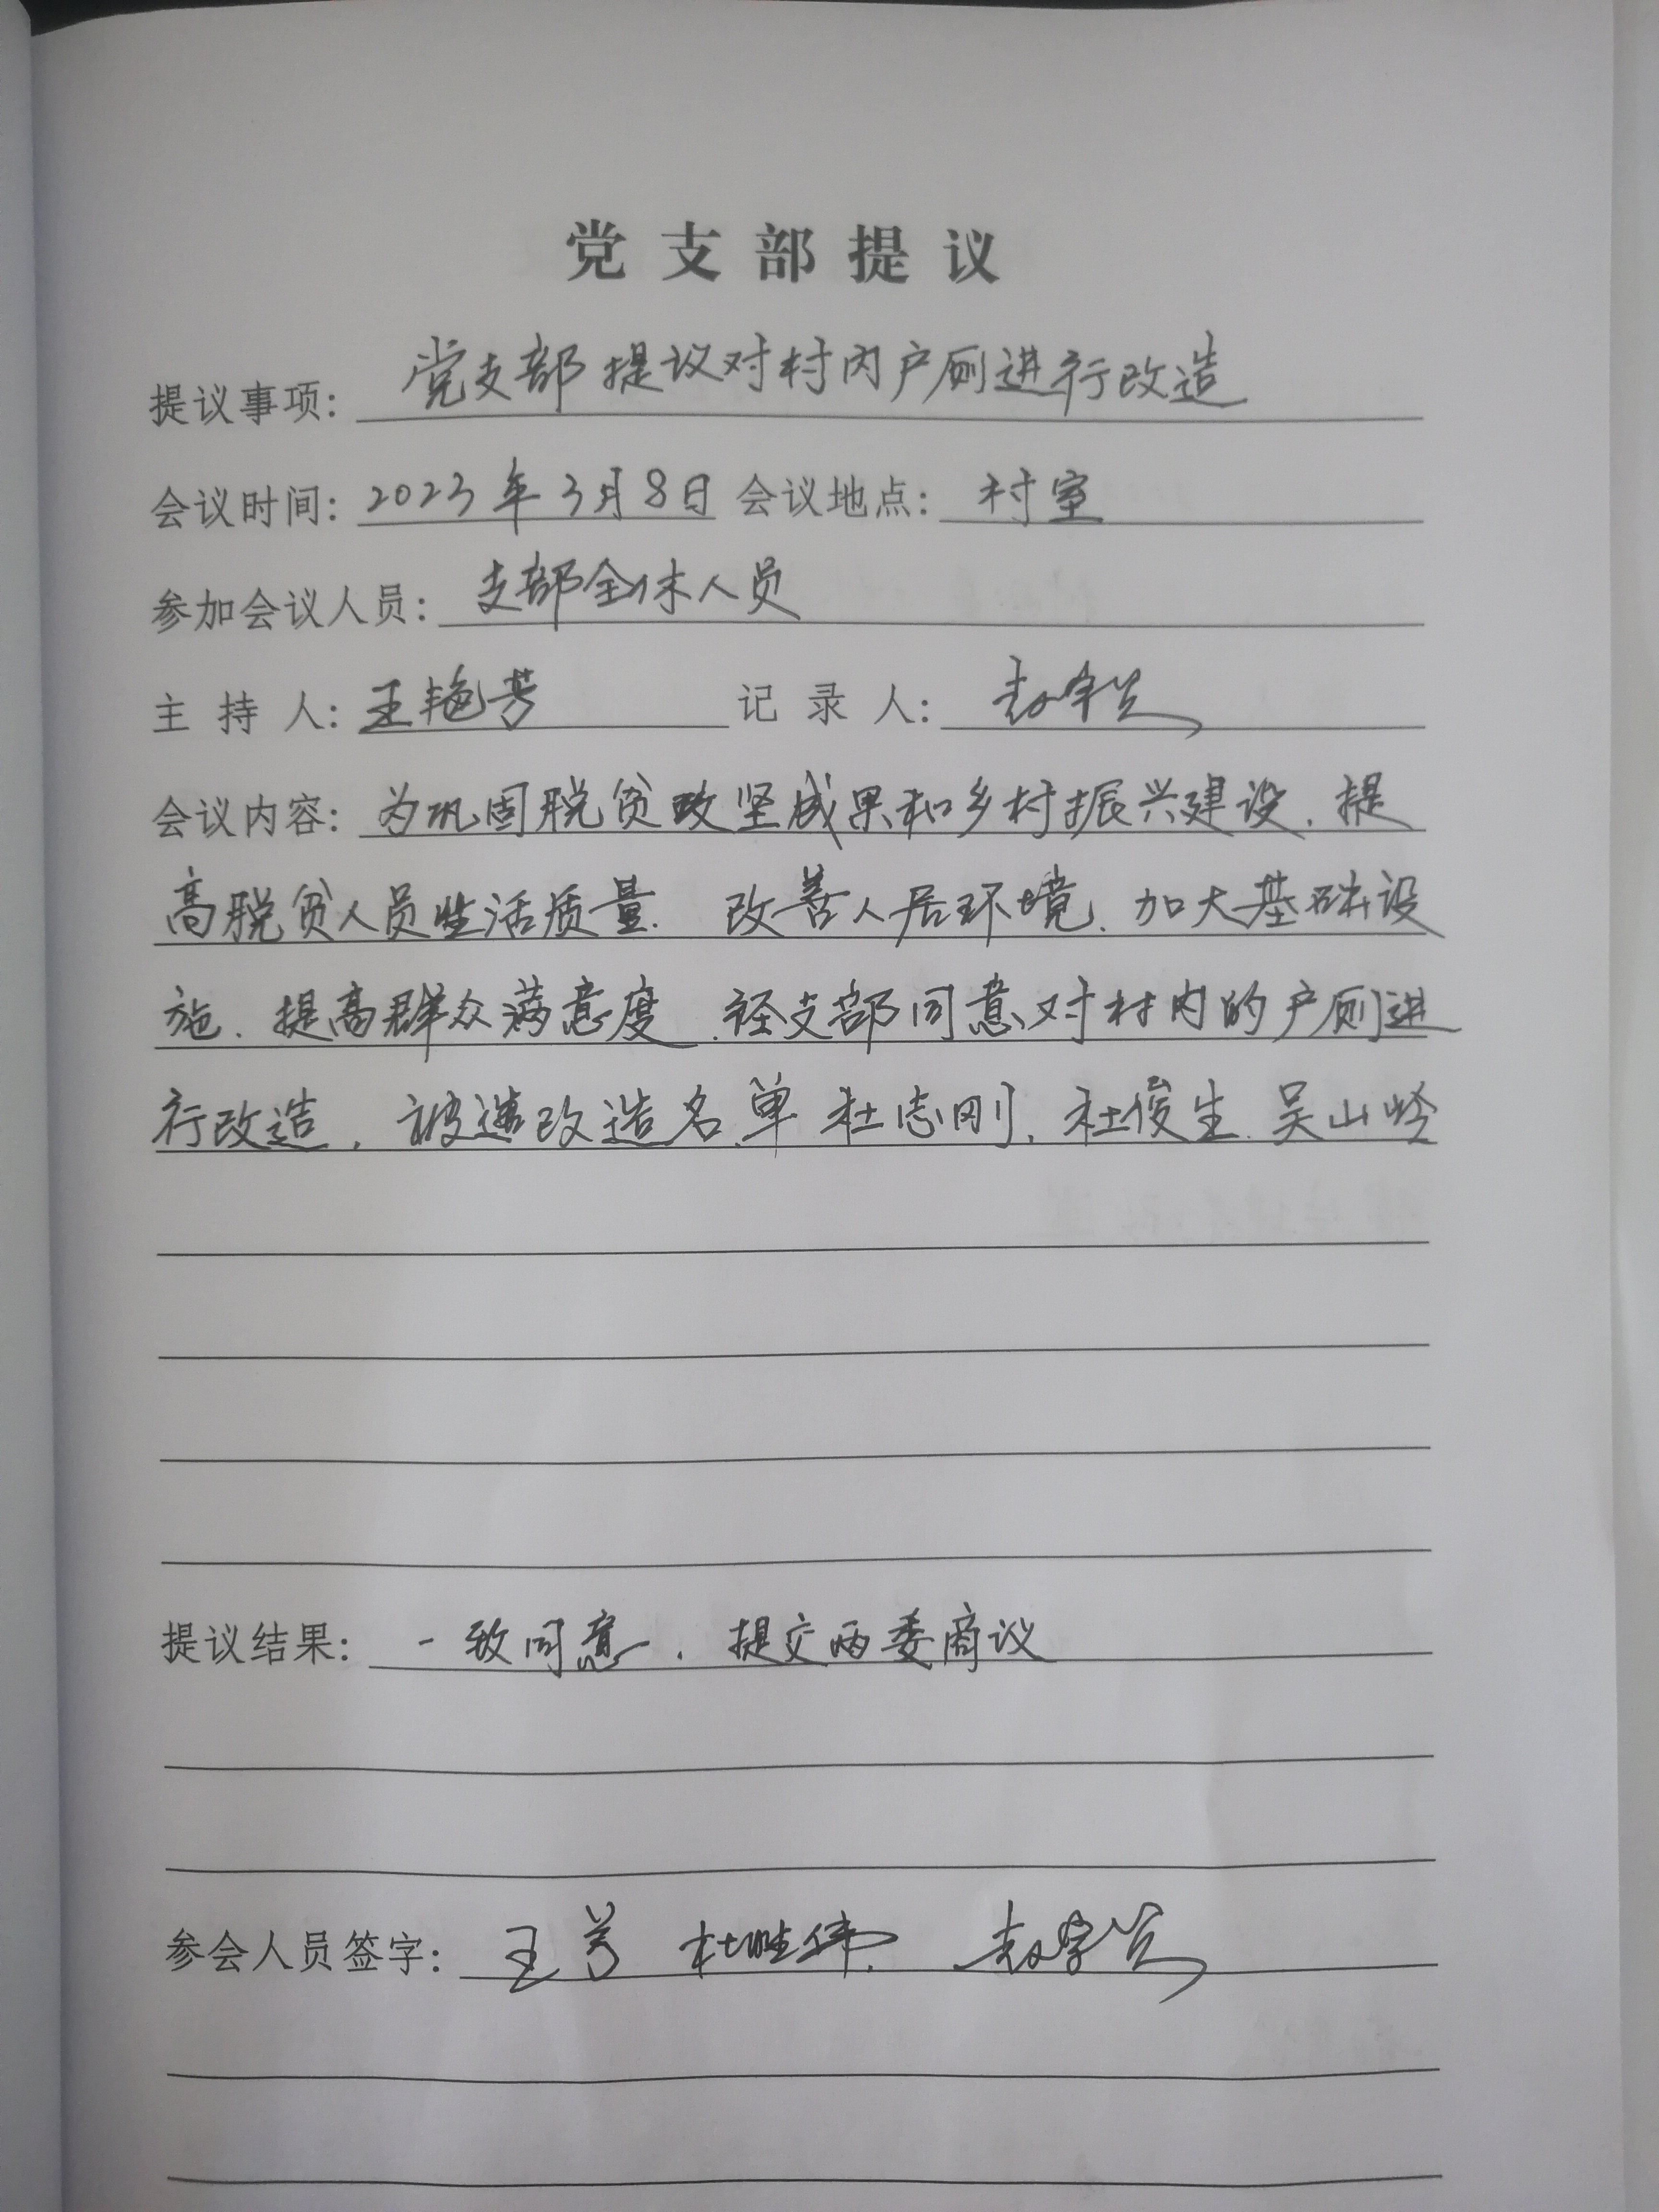 党支部提议
提议事项: 党支部提议对村内户厕进行改造
会议时间: 2023年3月8日 会议地点: 村室
参加会议人员: 支部全体人员
主 持 人: 王艳芳 记 录 人:
会议内容: 为巩固脱贫攻坚成果和乡村振兴建设、提
高脱贫人员生活质量. 改善人居环境、加大基础设
施、提高群众满意度、经支部同意对村内的户厕进
行改造、被造改造名单 杜志刚、杜俊生、吴山岭
提议结果: 一致同意、提交两委商议
参会人员签字: 王芳 杜胜伟